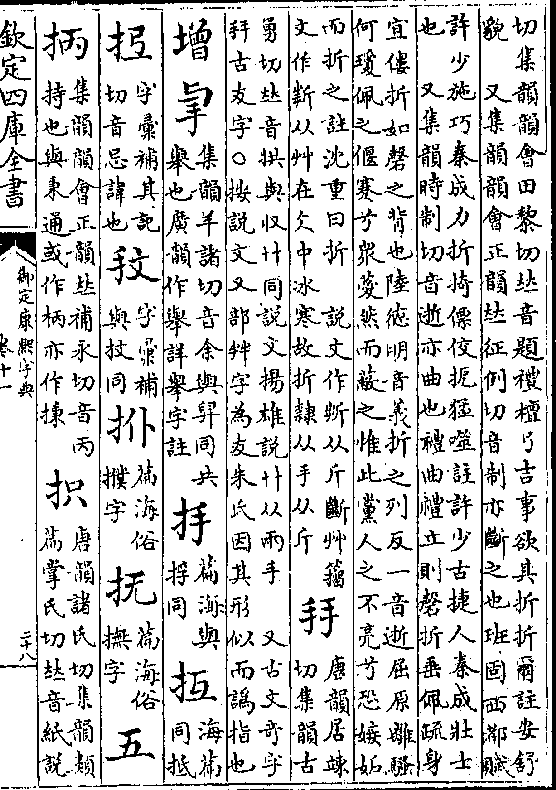 切集韻韻會田黎切𠀤音題禮檀弓吉事欲其折折爾註安舒
貌 又集韻韻會正韻𠀤征例切音制亦斷之也班固西都賦
許少施巧秦成力折掎僄狡扼猛噬註許少古捷人秦成壯士
也 又集韻時制切音逝亦曲也禮曲禮立則磬折垂佩疏身
宜僂折如磬之背也陸德明音義折之列反一音逝屈原離騷
何瓊佩之偃蹇兮衆薆然而蔽之惟此黨人之不亮兮恐嫉妬
而折之註沈重曰折 說文作𣂚从斤斷艸籀
文作𣃁从艸在仌中冰寒故折隷从手从斤
𢪒
唐韻居竦
切集韻古
勇切𠀤音拱與収廾同說文揚雄說廾从兩手 又古文奇字
𢪒古友字○按說文又部𦫶字為友朱氏因其形似而譌指也
增
𢩮
集韻羊諸切音余與舁同共
舉也廣韻作舉詳舉字註
𢪇
篇海與
捊同
𢪆
海篇
同抵
㧈
字彙補其記
切音忌諱也
𢪊
字彙補
與技同
扑
篇海俗
撲字
抚
篇海俗
撫字
五
抦
集韻韻會正韻𠀤補永切音丙
持也與秉通或作柄亦作捒
抧
唐韻諸氏切集韻頬
篇掌氏切𠀤音紙說
欽定四庫全書
御定康熙字典
卷十一
二十八